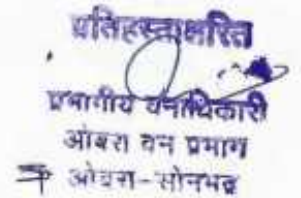 प्रतिहस्ताक्षरित
प्रभागीय वनाधिकारी
ओबरा वन प्रभाग
ओबरा-सोनभद्र